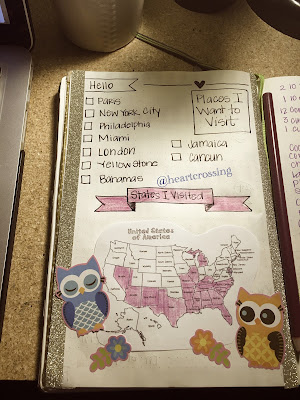 Hello
Places I
Want to
Visit
Paris
New York City
Philadelphia
Miami
London
Yellowstone
Bahamas
Jamaica
Cancun
@heartcrossing
States I Visited
United States
of America